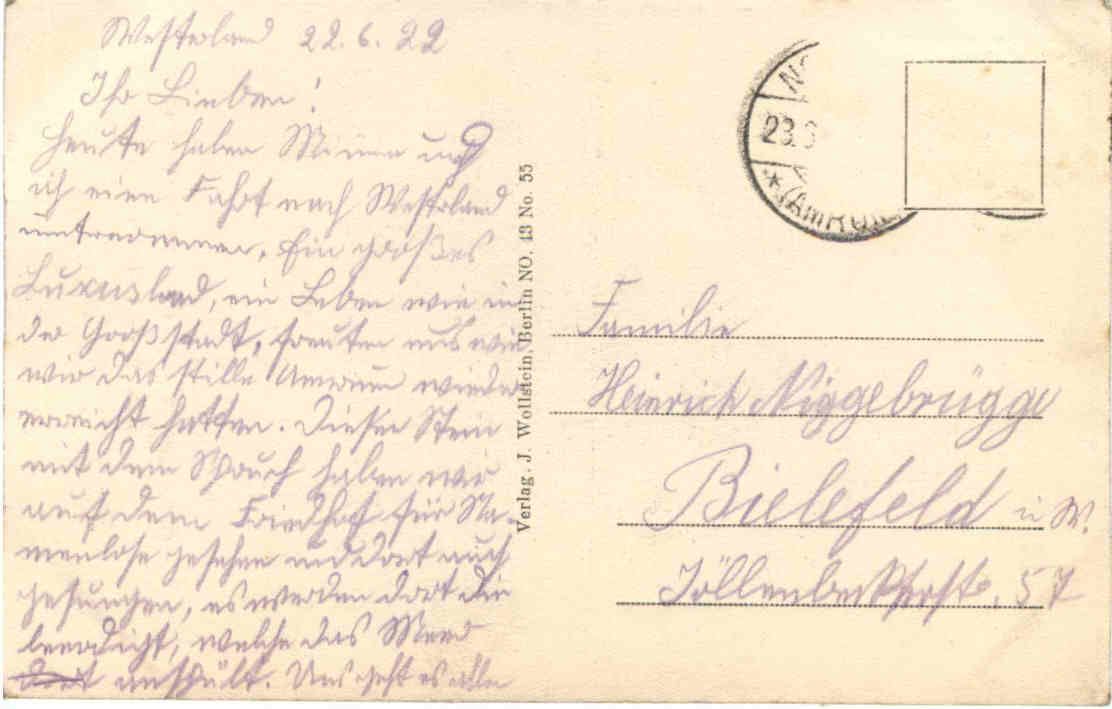 Westerland 22.6.22
Ihr Lieben!
Heute haben Minna und
ich eine Fahrt nach Westerland
unternommen. Ein großes
Luxusland, ein Leben wie in
der Großstadt, freuten uns wie
wir das stille Amrum wieder
erreicht hatten. Diesen Stein
mit dem Spruch haben wir
auf dem Friedhof für Na-
menlose gesehen und dort auch
gesungen, es werden dort die
beerdigt, welche das Meer
dort anspült. Uns geht es allen
Verlag. J. Wollstein, Berlin NO. 43 No. 55
23.
* (AMRUM
Familie
Heinrich Niggebrügge
Bielefeld i W.
Jöllenbeckerstr. 57